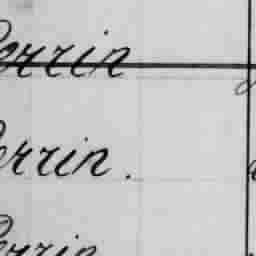 Perrin
Perrin.
Perrin